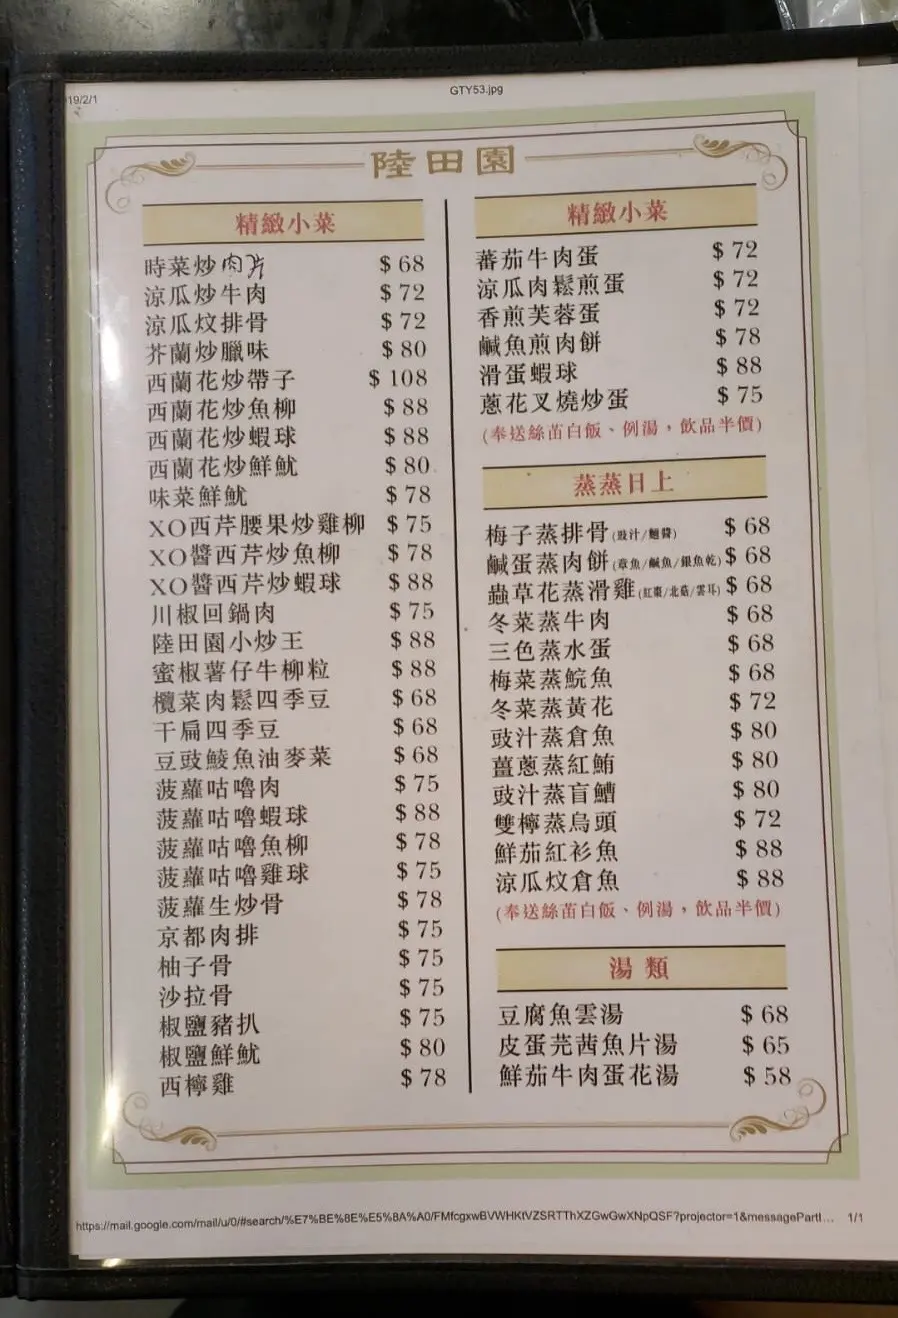 19/2/1
GTY53.jpg
陸田園
精緻小菜
時菜炒肉片 $ 68
涼瓜炒牛肉 $ 72
涼瓜炆排骨 $ 72
芥蘭炒臘味 $ 80
西蘭花炒帶子 $ 108
西蘭花炒魚柳 $ 88
西蘭花炒蝦球 $ 88
西蘭花炒鮮魷 $ 80
味菜鮮魷 $ 78
XO西芹腰果炒雞柳 $ 75
XO醬西芹炒魚柳 $ 78
XO醬西芹炒蝦球 $ 88
川椒回鍋肉 $ 75
陸田園小炒王 $ 88
蜜椒薯仔牛柳粒 $ 88
欖菜肉鬆四季豆 $ 68
干扁四季豆 $ 68
豆豉鯪魚油麥菜 $ 68
菠蘿咕嚕肉 $ 75
菠蘿咕嚕蝦球 $ 88
菠蘿咕嚕魚柳 $ 78
菠蘿咕嚕雞球 $ 75
菠蘿生炒骨 $ 78
京都肉排 $ 75
柚子骨 $ 75
沙拉骨 $ 75
椒鹽豬扒 $ 75
椒鹽鮮魷 $ 80
西檸雞 $ 78
精緻小菜
蕃茄牛肉蛋 $ 72
涼瓜肉鬆煎蛋 $ 72
香煎芙蓉蛋 $ 72
鹹魚煎肉餅 $ 78
滑蛋蝦球 $ 88
蔥花叉燒炒蛋 $ 75
(奉送絲苗白飯、例湯，飲品半價)
蒸蒸日上
梅子蒸排骨(豉汁/麵醬) $ 68
鹹蛋蒸肉餅(章魚/鹹魚/銀魚乾) $ 68
蟲草花蒸滑雞(紅棗/北菇/雲耳) $ 68
冬菜蒸牛肉 $ 68
三色蒸水蛋 $ 68
梅菜蒸鯇魚 $ 68
冬菜蒸黃花 $ 72
豉汁蒸倉魚 $ 80
薑蔥蒸紅鮪 $ 80
豉汁蒸盲鰽 $ 80
雙檸蒸烏頭 $ 72
鮮茄紅衫魚 $ 88
涼瓜炆倉魚 $ 88
(奉送絲苗白飯、例湯，飲品半價)
湯類
豆腐魚雲湯 $ 68
皮蛋芫茜魚片湯 $ 65
鮮茄牛肉蛋花湯 $ 58
https://mail.google.com/mail/u/0/#search/%E7%BE%8E%E5%8A%A0/FMfcgxwBVWHKtVZSRTThXZGwGwXNpQSF?projector=1&messagePartI... 1/1